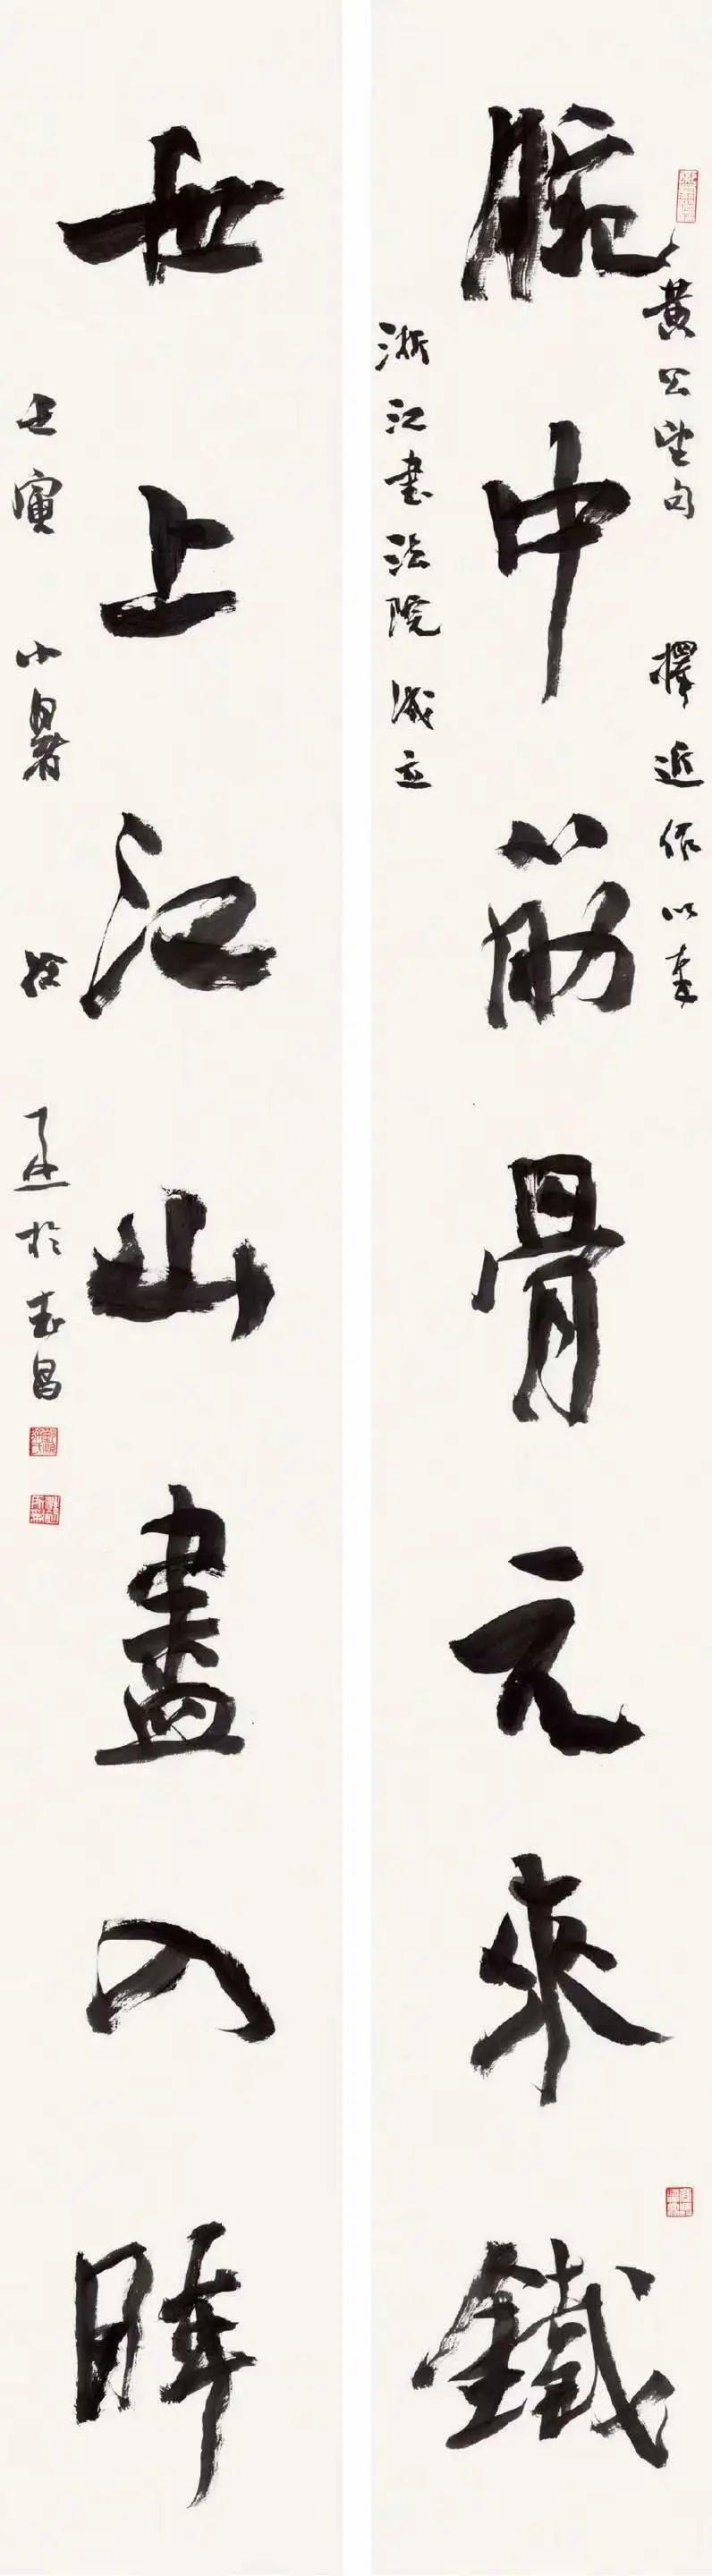 黃公望句 擇近作以奉
腕中筋骨元來鐵
浙江書法院成立
世上江山盡入眸
壬寅 小暑 於武昌